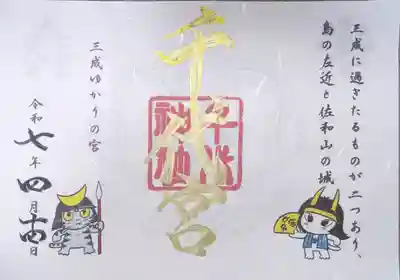 三成に過ぎたるものが二つあり、
島の左近と佐和山の城
千代宮
千代
神社
三成ゆかりの宮
令和七年四月十四日